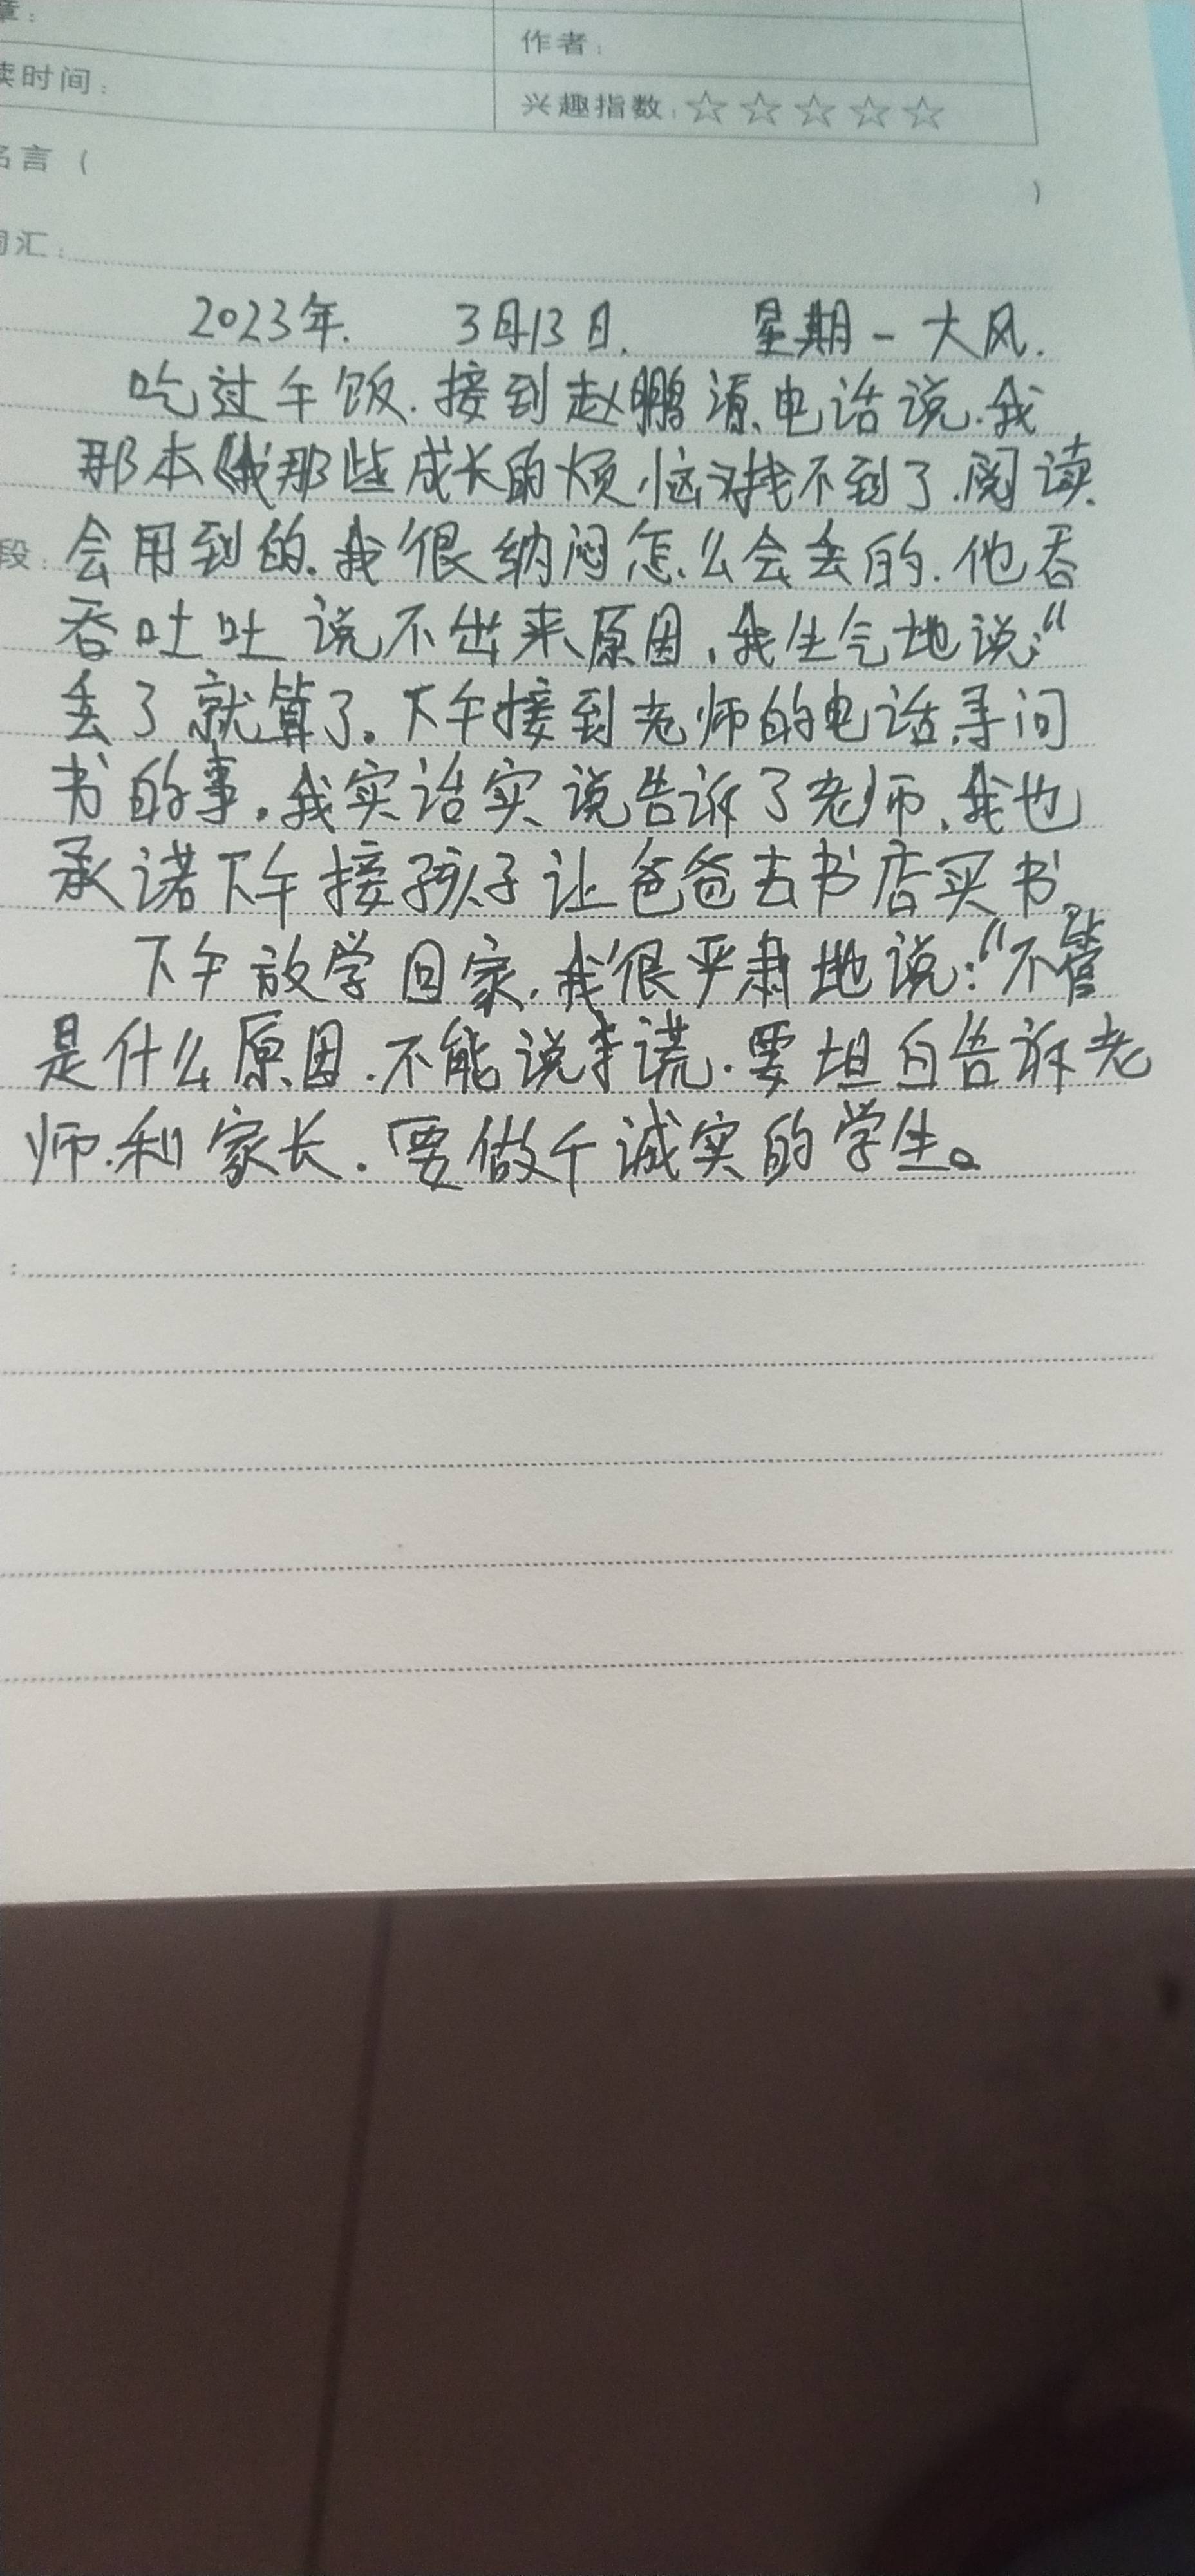 章：
作者：
读时间：
兴趣指数：☆☆☆☆☆
名言（ ）
词汇：
2023年. 3月13日. 星期一 大风.
吃过午饭.接到赵鹏源电话说.我
那本《我那些成长的烦恼》找不到了.阅读
段：
会用到的.我很纳闷怎么会丢的.他吞
吞吐吐说不出来原因,我生气地说:“
丢了就算了。下午接到老师的电话.寻问
书的事。我实话实说告诉了老师,我也
承诺下午接孩子让爸爸去书店买书。
下午放学回家.我很严肃地说:“不管
是什么原因.不能说谎.要坦白告诉老
师.和家长.要做个诚实的学生。
：